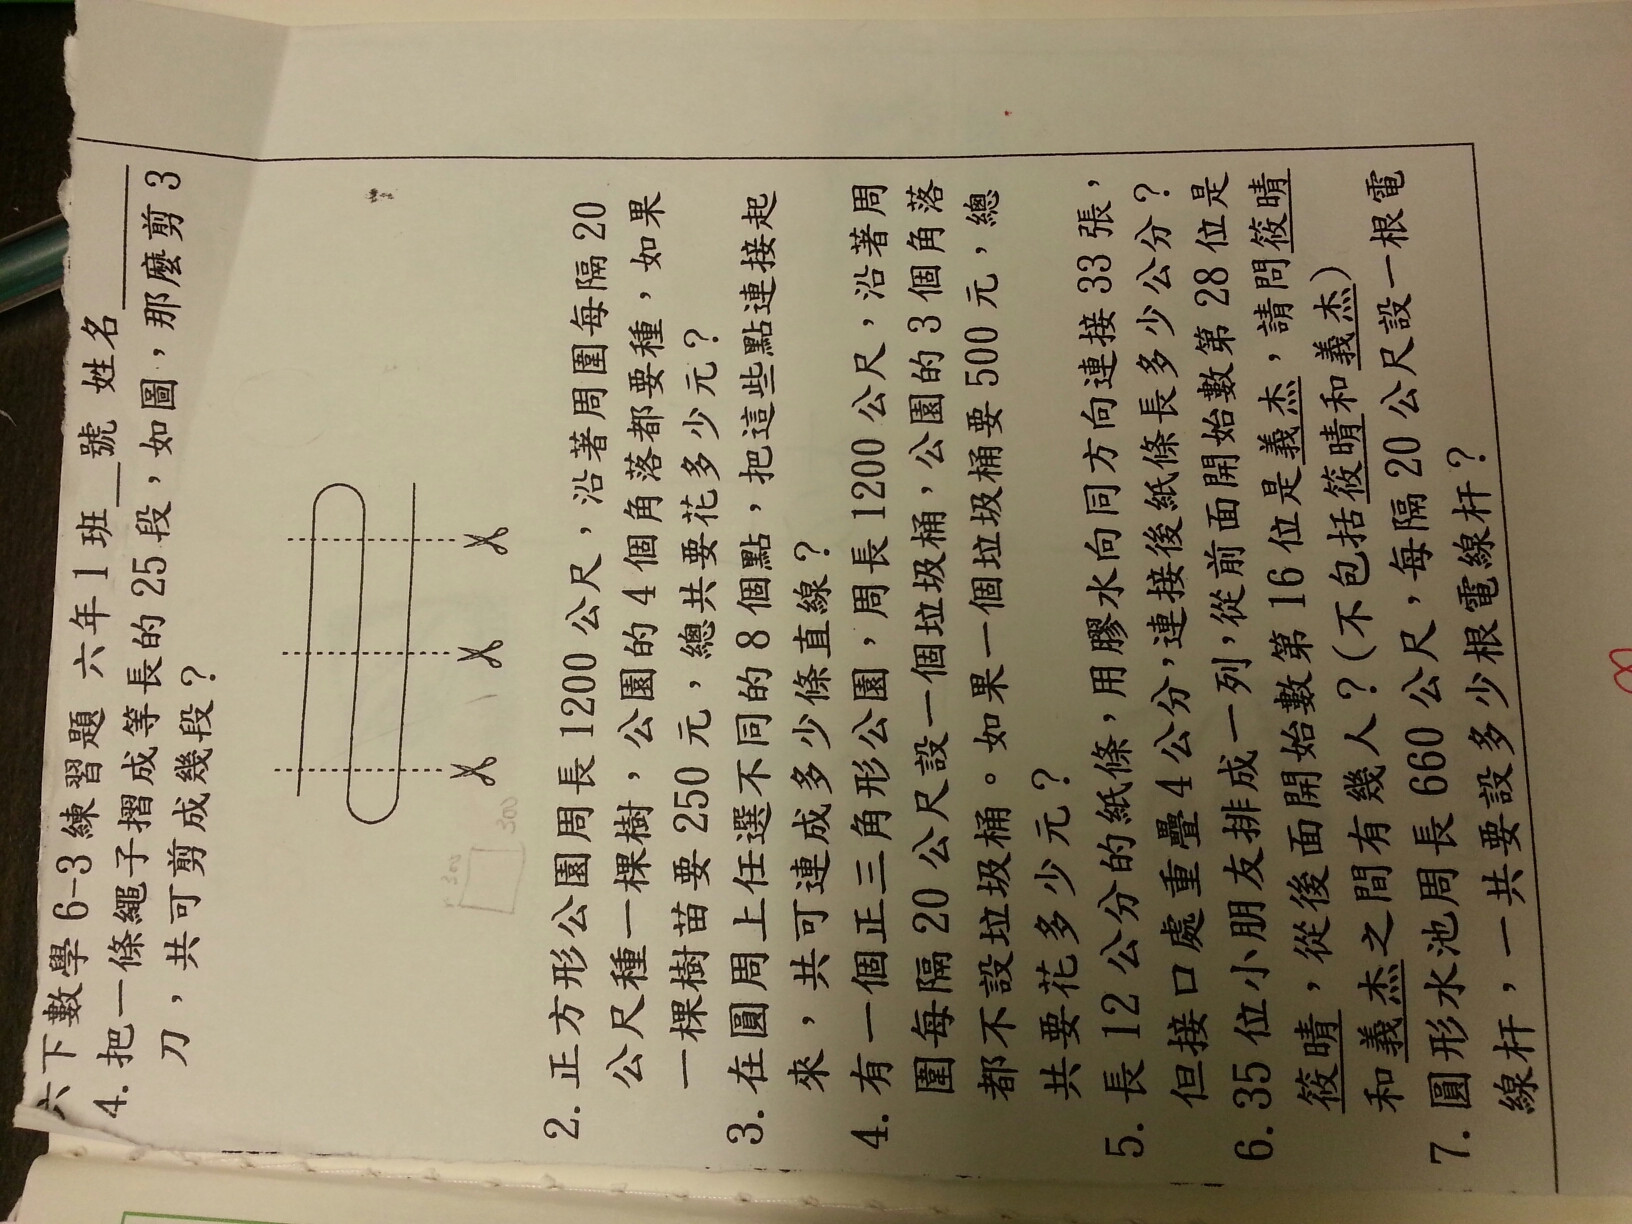 六下數學 6-3 練習題 六年 1 班__號 姓名______
4. 把一條繩子摺成等長的 25 段，如圖，那麼剪 3
刀，共可剪成幾段？
300
300
2. 正方形公園周長 1200 公尺，沿著周圍每隔 20
公尺種一棵樹，公園的 4 個角落都要種，如果
一棵樹苗要 250 元，總共要花多少元？
3. 在圓周上任選不同的 8 個點，把這些點連接起
來，共可連成多少條直線？
4. 有一個正三角形公園，周長 1200 公尺，沿著周
圍每隔 20 公尺設一個垃圾桶，公園的 3 個角落
都不設垃圾桶。如果一個垃圾桶要 500 元，總
共要花多少元？
5. 長 12 公分的紙條，用膠水向同方向連接 33 張，
但接口處重疊 4 公分，連接後紙條長多少公分？
6. 35 位小朋友排成一列，從前面開始數第 28 位是
筱晴，從後面開始數第 16 位是義杰，請問筱晴
和義杰之間有幾人？(不包括筱晴和義杰)
7. 圓形水池周長 660 公尺，每隔 20 公尺設一根電
線杆，一共要設多少根電線杆？